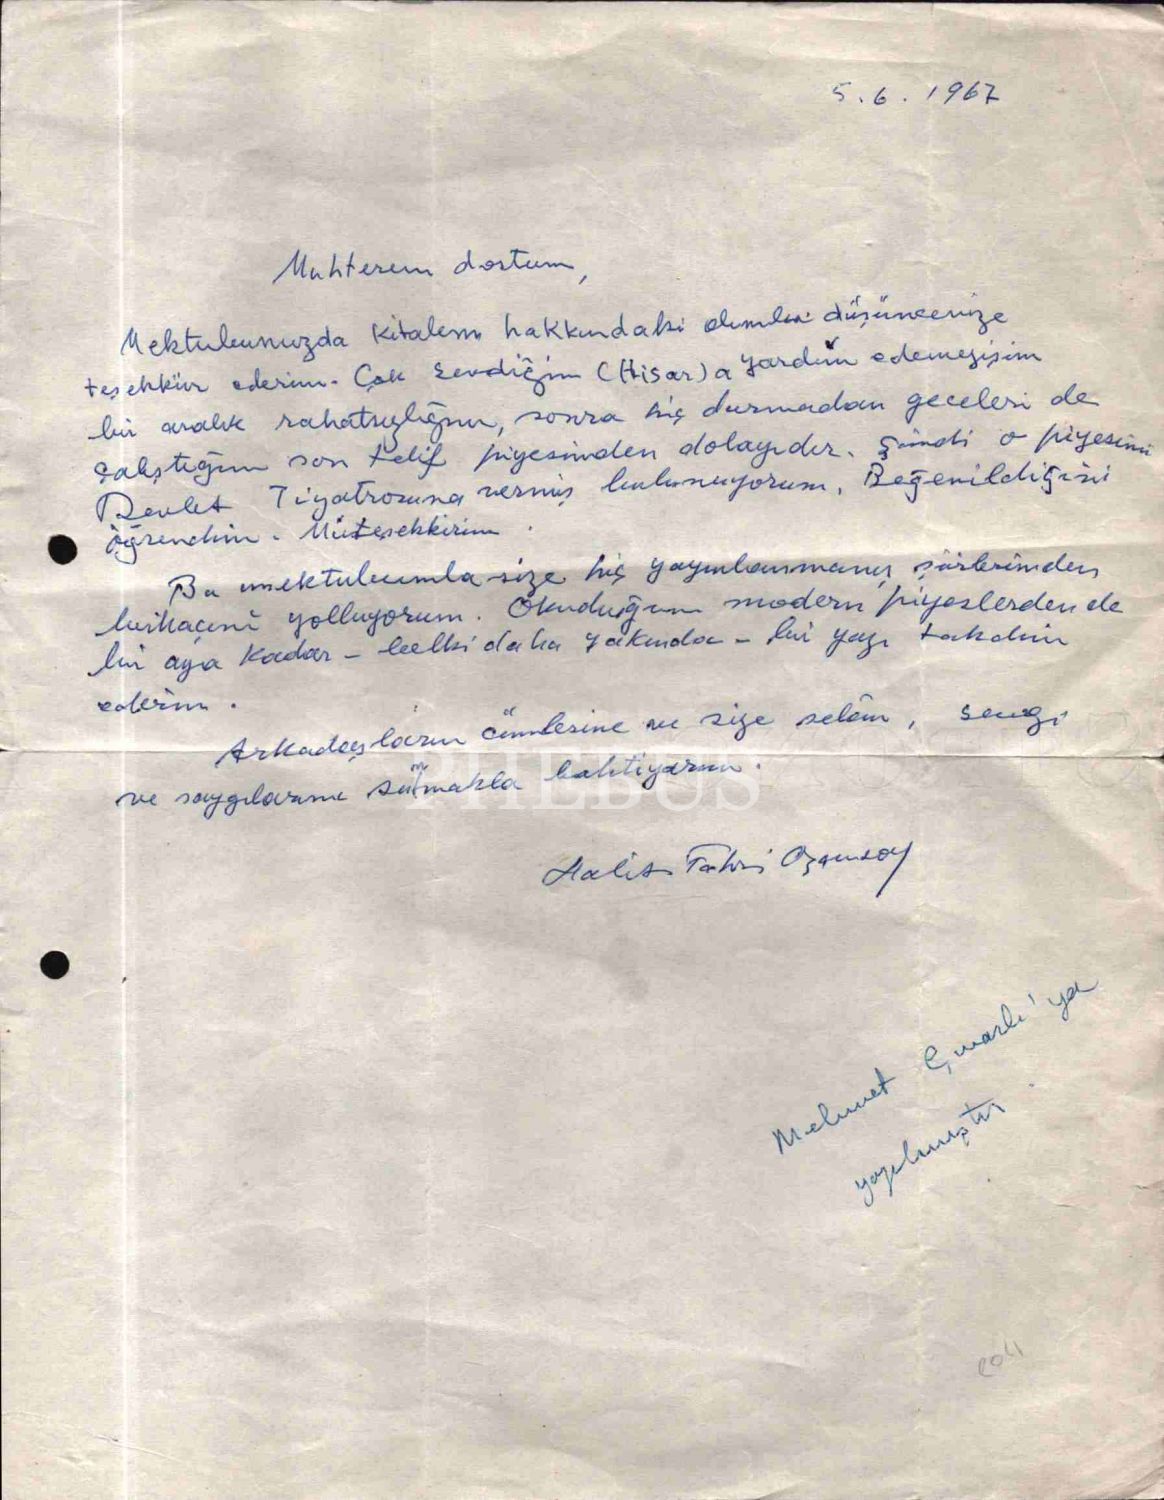 5.6.1967
Muhterem dostum,
Mektubunuzda kitabım hakkındaki olumlu düşüncenize
teşekkür ederim. Çok sevdiğim (Hisar)a yardım edemeyişim
bir aralık rahatsızlığım, sonra hiç durmadan geceleri de
çalıştığım son telif piyesimden dolayıdır. Şimdi o piyesimi
Devlet Tiyatrosuna vermiş bulunuyorum. Beğenildiğini
öğrendim. Müteşekkirim.
Bu mektubumla size hiç yayınlanmamış şiirlerimden
birkaçını yolluyorum. Okuduğum modern piyeslerden de
bir aya kadar - belki daha yakında - bir yazı takdim
ederim.
Arkadaşların cümlesine ve size selâm, sevgi
ve saygılarımı sunmakla bahtiyarım.
PHEBUS
Halit Fahri Ozansoy
Mehmet Çınarlı'ya
yazılmıştır